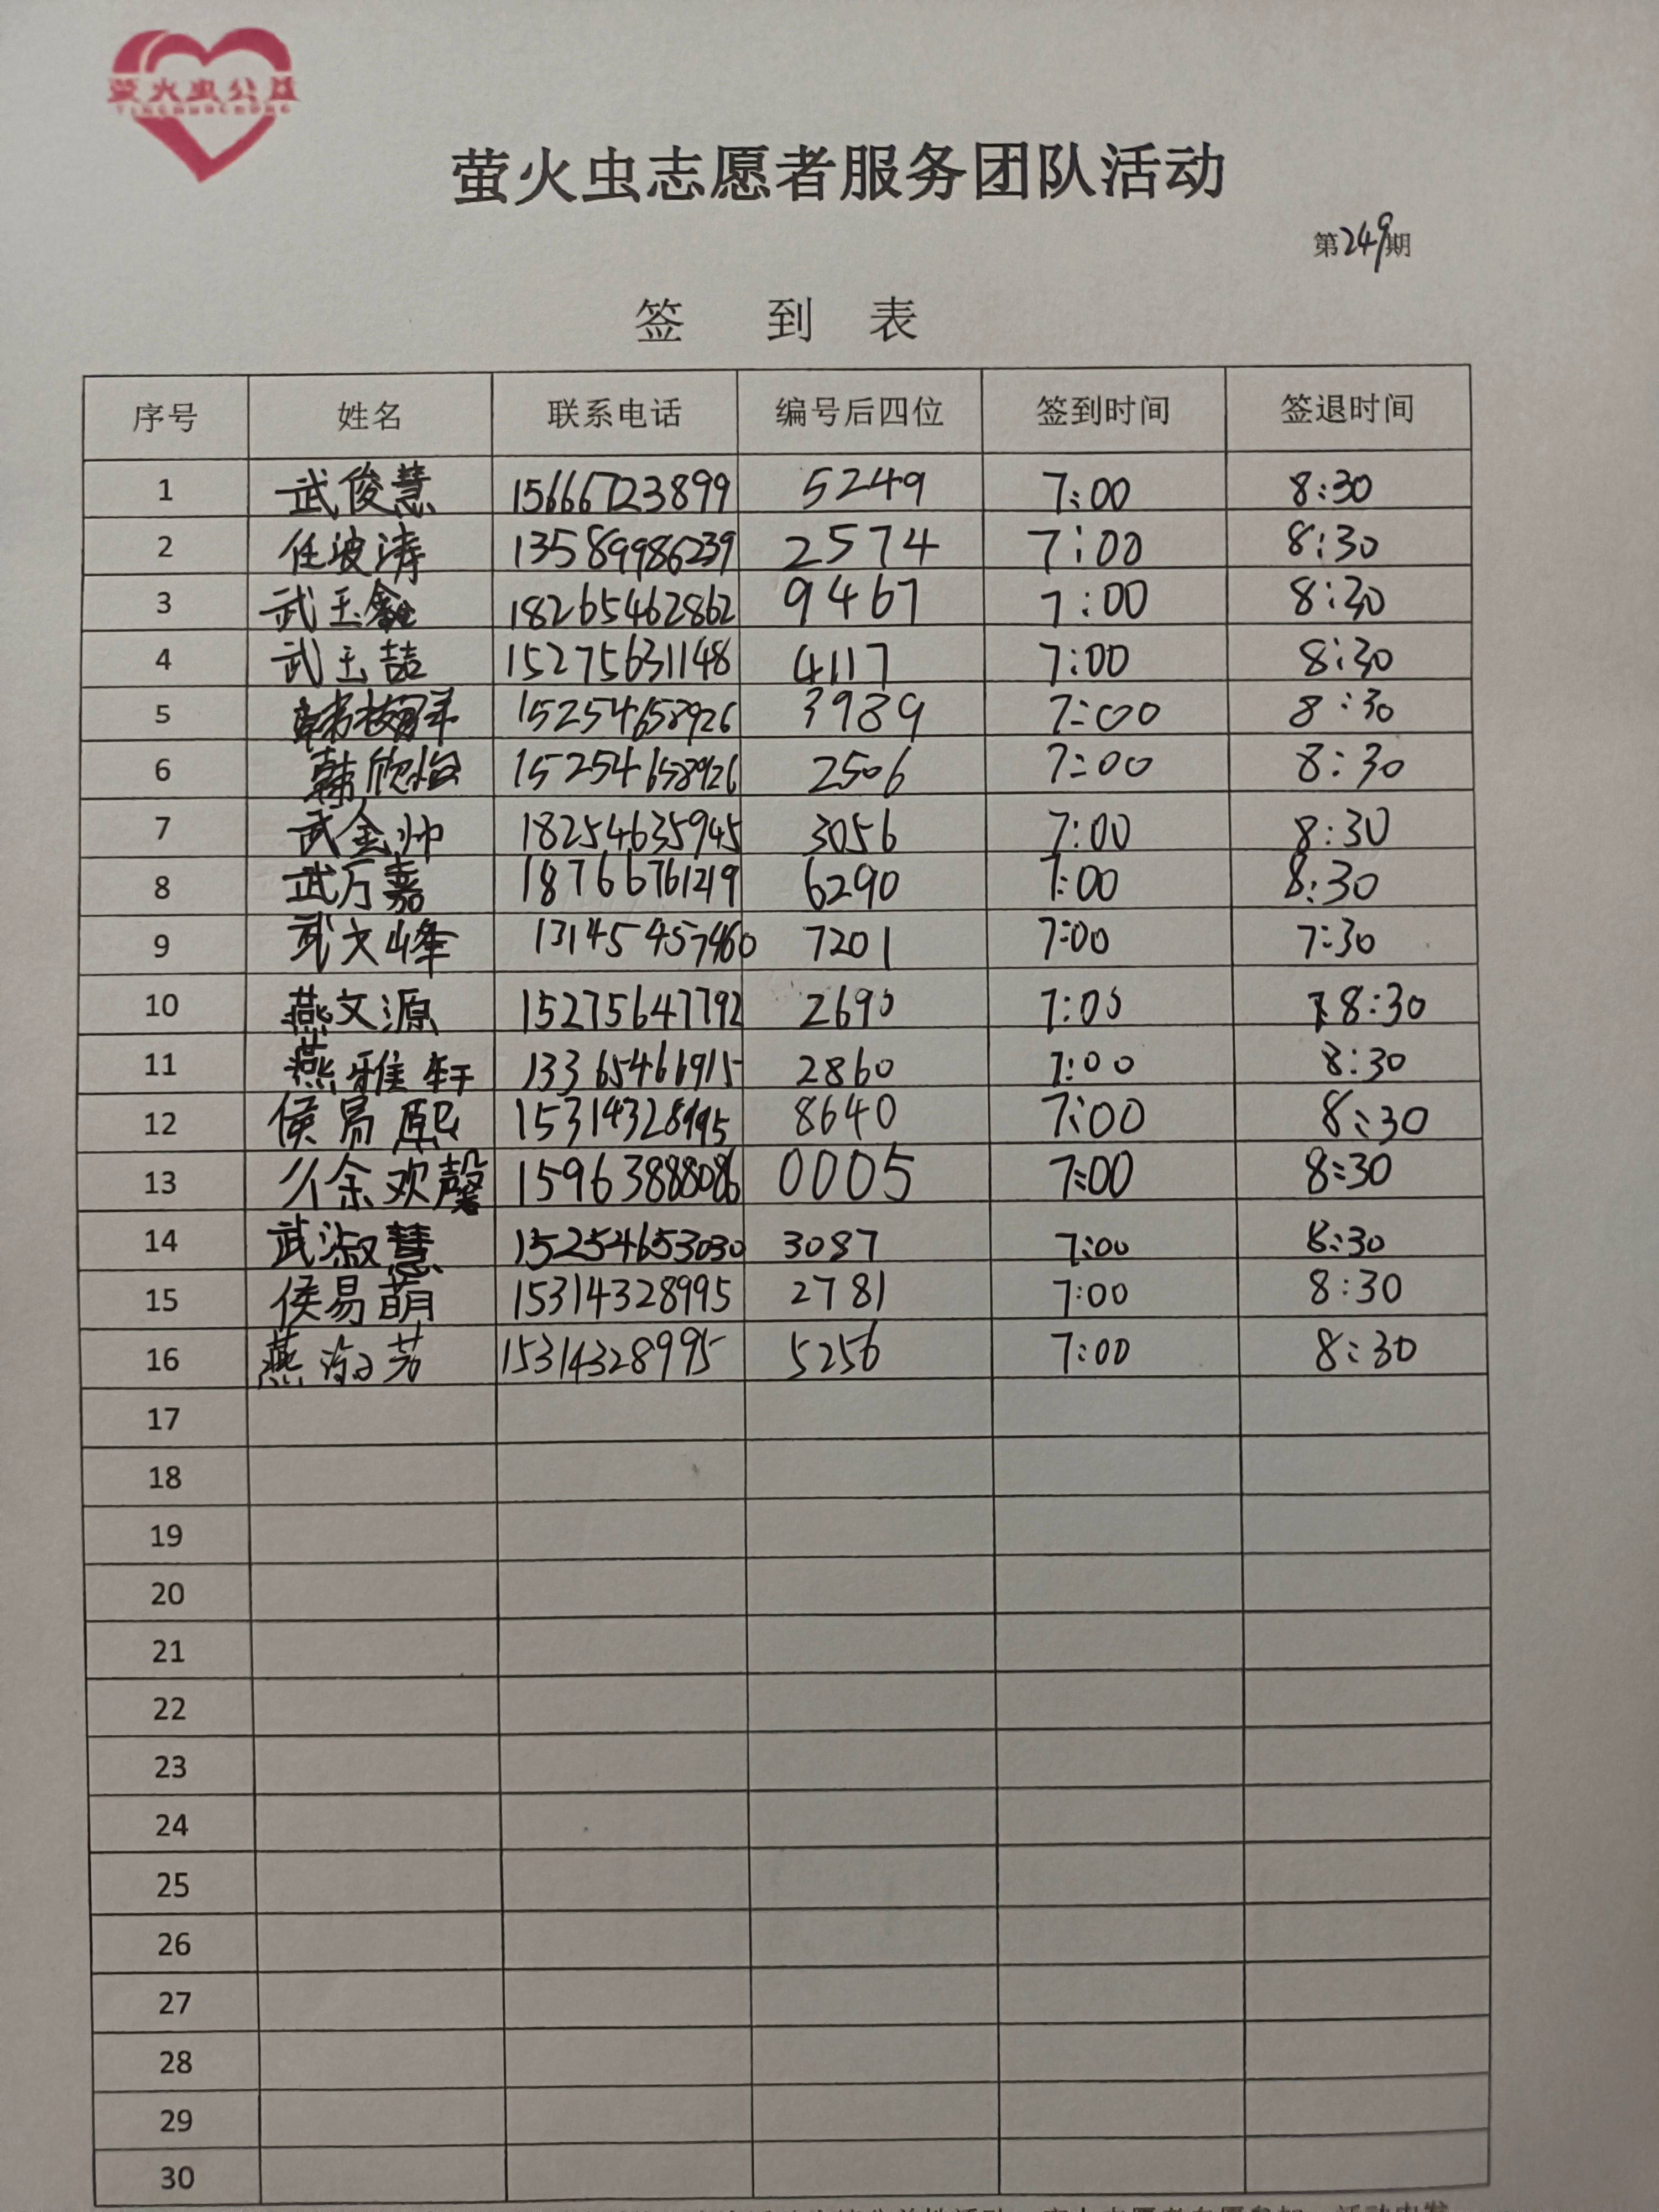 萤火虫公益
YINGHUOCHONG
萤火虫志愿者服务团队活动
第249期
签 到 表
序号 姓名 联系电话 编号后四位 签到时间 签退时间
1 武俊慧 15666723899 5249 7:00 8:30
2 任波涛 13589986239 2574 7:00 8:30
3 武玉鑫 18265462862 9467 7:00 8:30
4 武玉喆 15275631148 4117 7:00 8:30
5 15254658926 3989 7:00 8:30
6 韩欣怡 15254658926 2506 7:00 8:30
7 武金帅 18254635945 3056 7:00 8:30
8 武万嘉 18766761219 6290 7:00 8:30
9 武文峰 13145457460 7201 7:00 7:30
10 燕文源 15275647792 2690 7:00 8:30
11 燕雅轩 13365466915 2860 7:00 8:30
12 侯易熙 15314328995 8640 7:00 8:30
13 徐欢馨 15963888086 0005 7:00 8:30
14 武淑慧 15254653030 3087 7:00 8:30
15 侯易萌 15314328995 2781 7:00 8:30
16 燕海芳 15314328995 5256 7:00 8:30
17
18
19
20
21
22
23
24
25
26
27
28
29
30